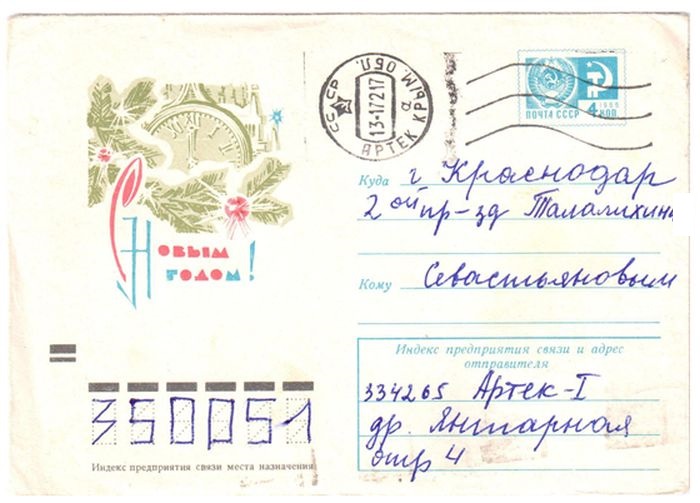 С Новым
годом!
СССР
13-1 72 17
а
АРТЕК КРЫМ. ОБЛ.
1966
4
ПОЧТА СССР КОП.
Куда г Краснодар
2ой пр-зд Талалихина
Кому Севастьяновым
Индекс предприятия связи и адрес
отправителя
334265 Артек-I
др. Янтарная
отр 4
350051
Индекс предприятия связи места назначения